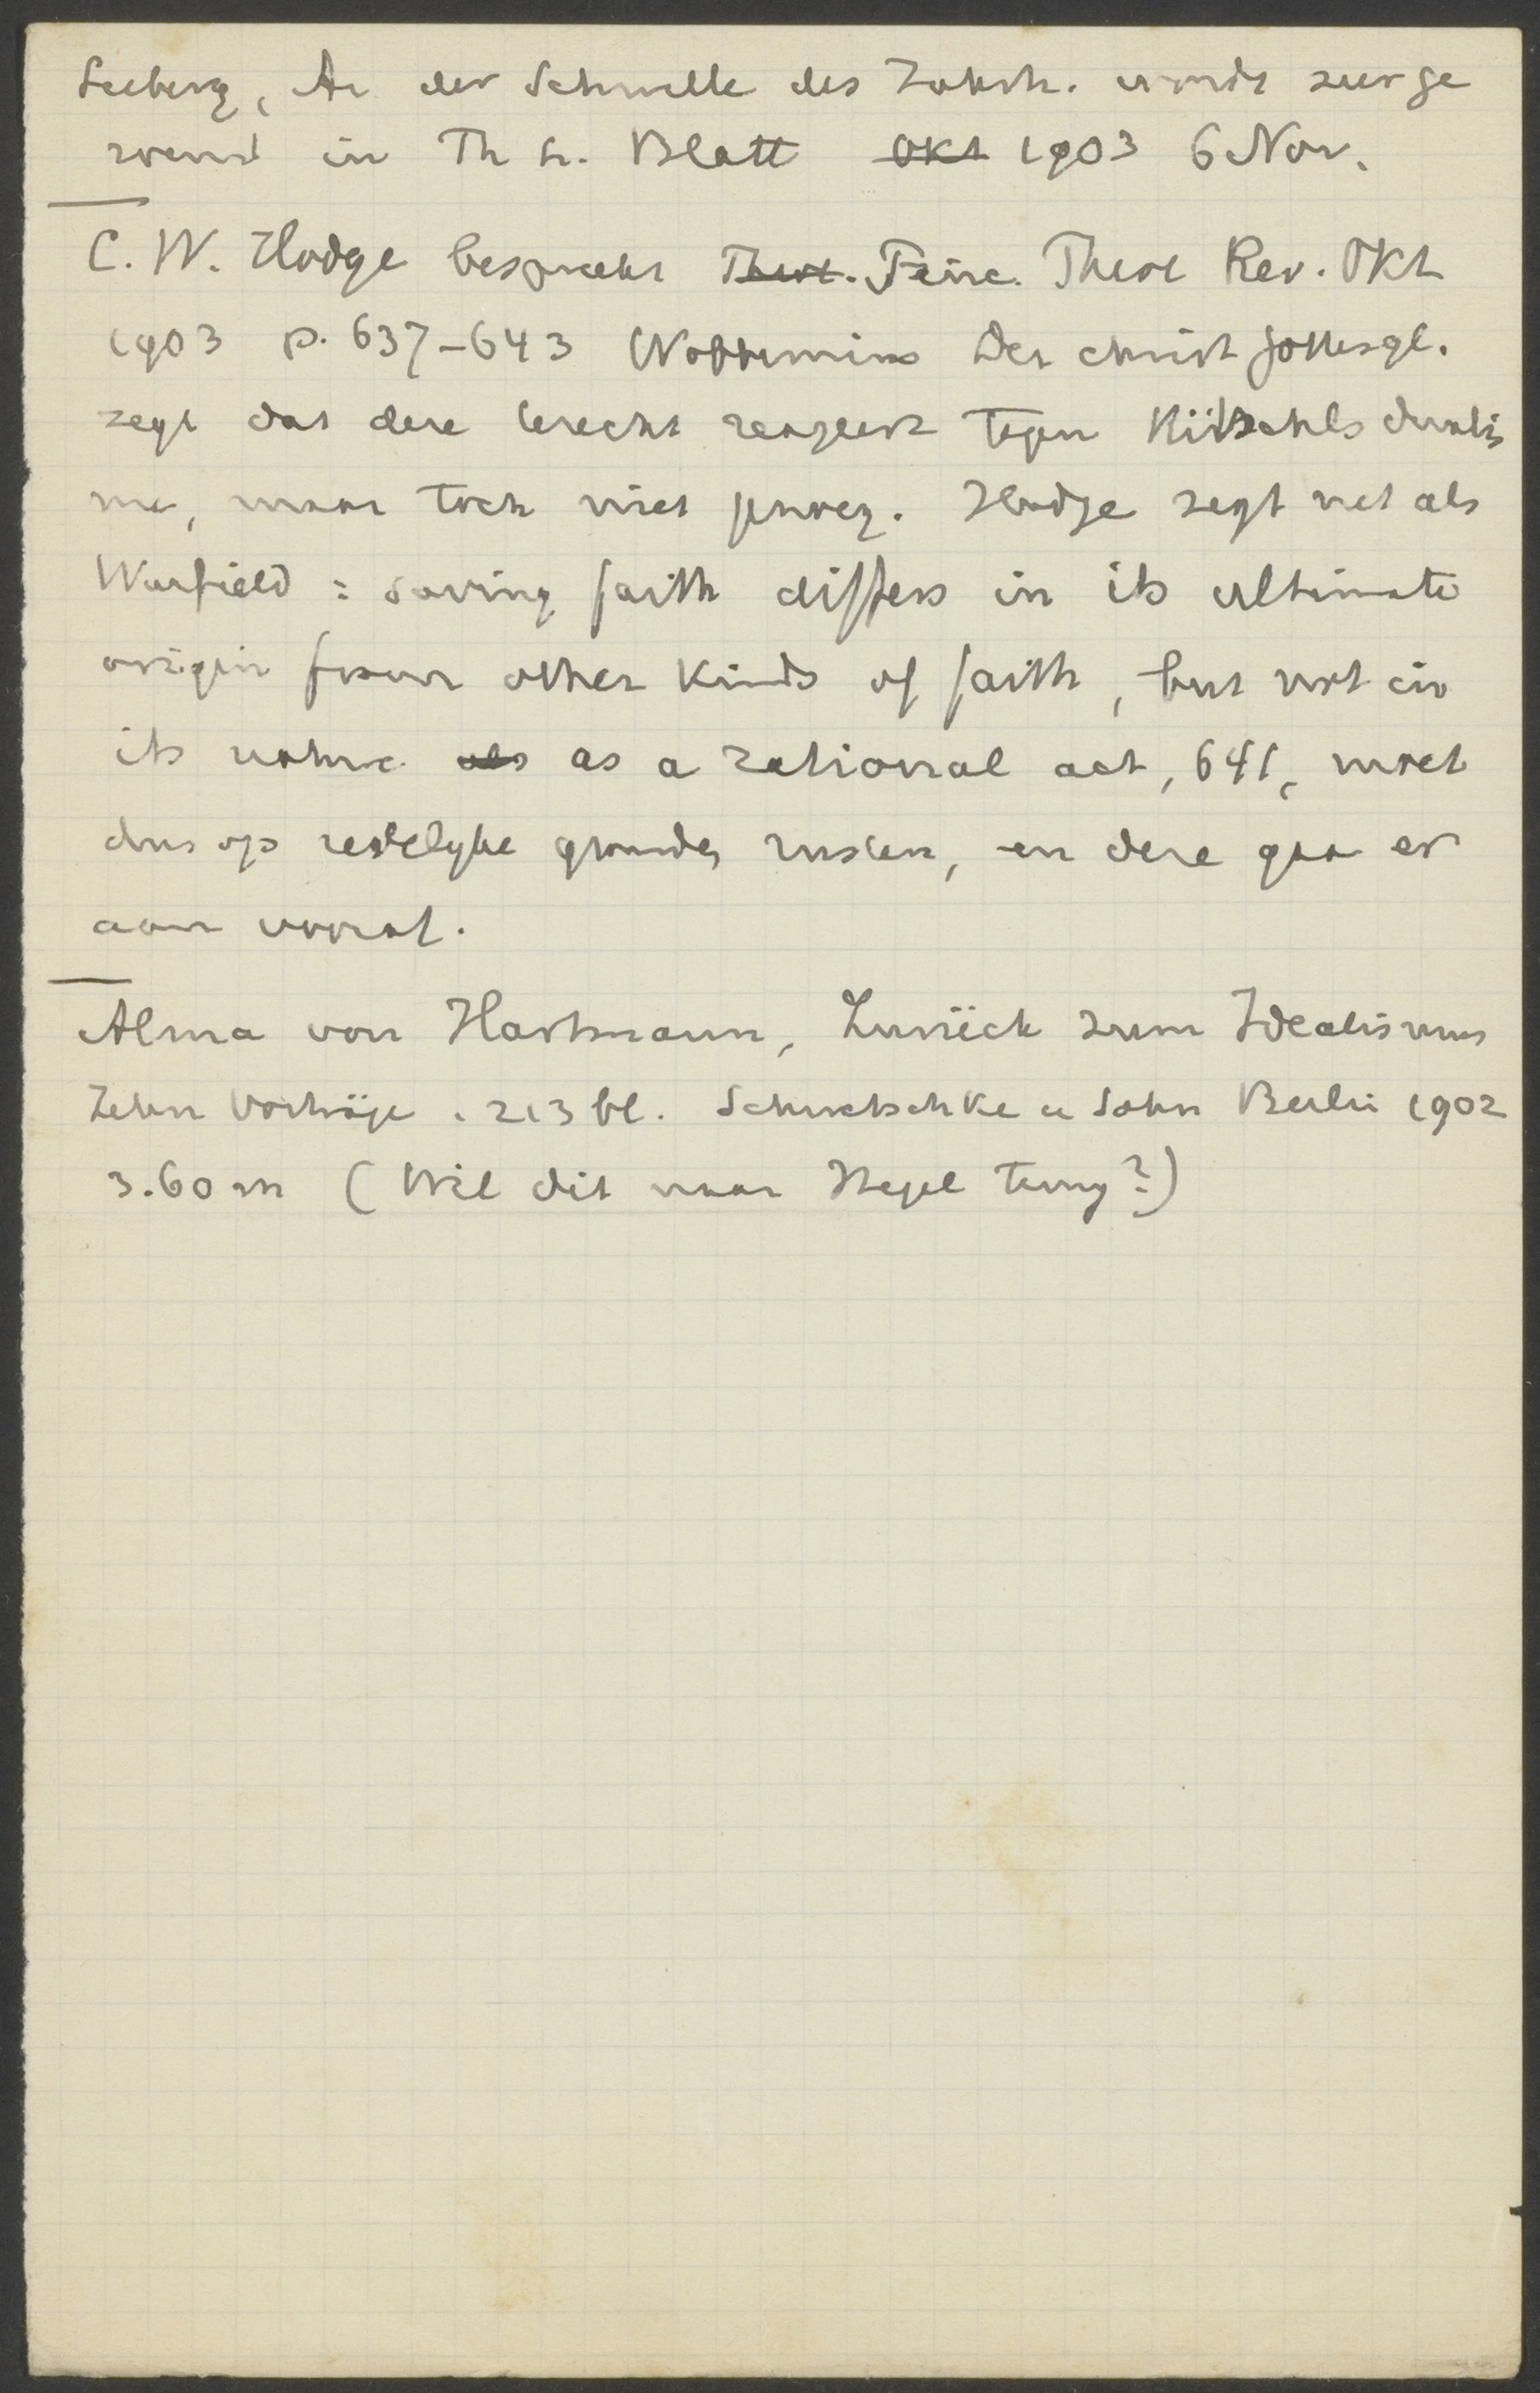 Seeberg, An der Schwelle des Jahrh. wordt zeer ge
roemd in Th Lr. Blatt Okt 1903 6 Nov.
C. W. Hodge bespreekt Theol. Princ. Theol Rev. Okt
1903 p. 637-643 Wobbermins Der christ Gottesgl.
zegt dat deze terecht reageert tegen Ritschls dualis
me, maar toch niet genoeg. Hodge zegt net als
Warfield: saving faith differs in its ultimate
origin from other kinds of faith, but not in
its nature als as a rational act, 641, moet
dus op redelyke gronden rusten, en deze gaa er
aan vooraf.
Alma von Hartmann, Zurück zum Idealismus
Zehn Vorträge. 213 bl. Schwetschke u Sohn Berlin 1902
3.60 m (Wil dit naar Hegel terug?)